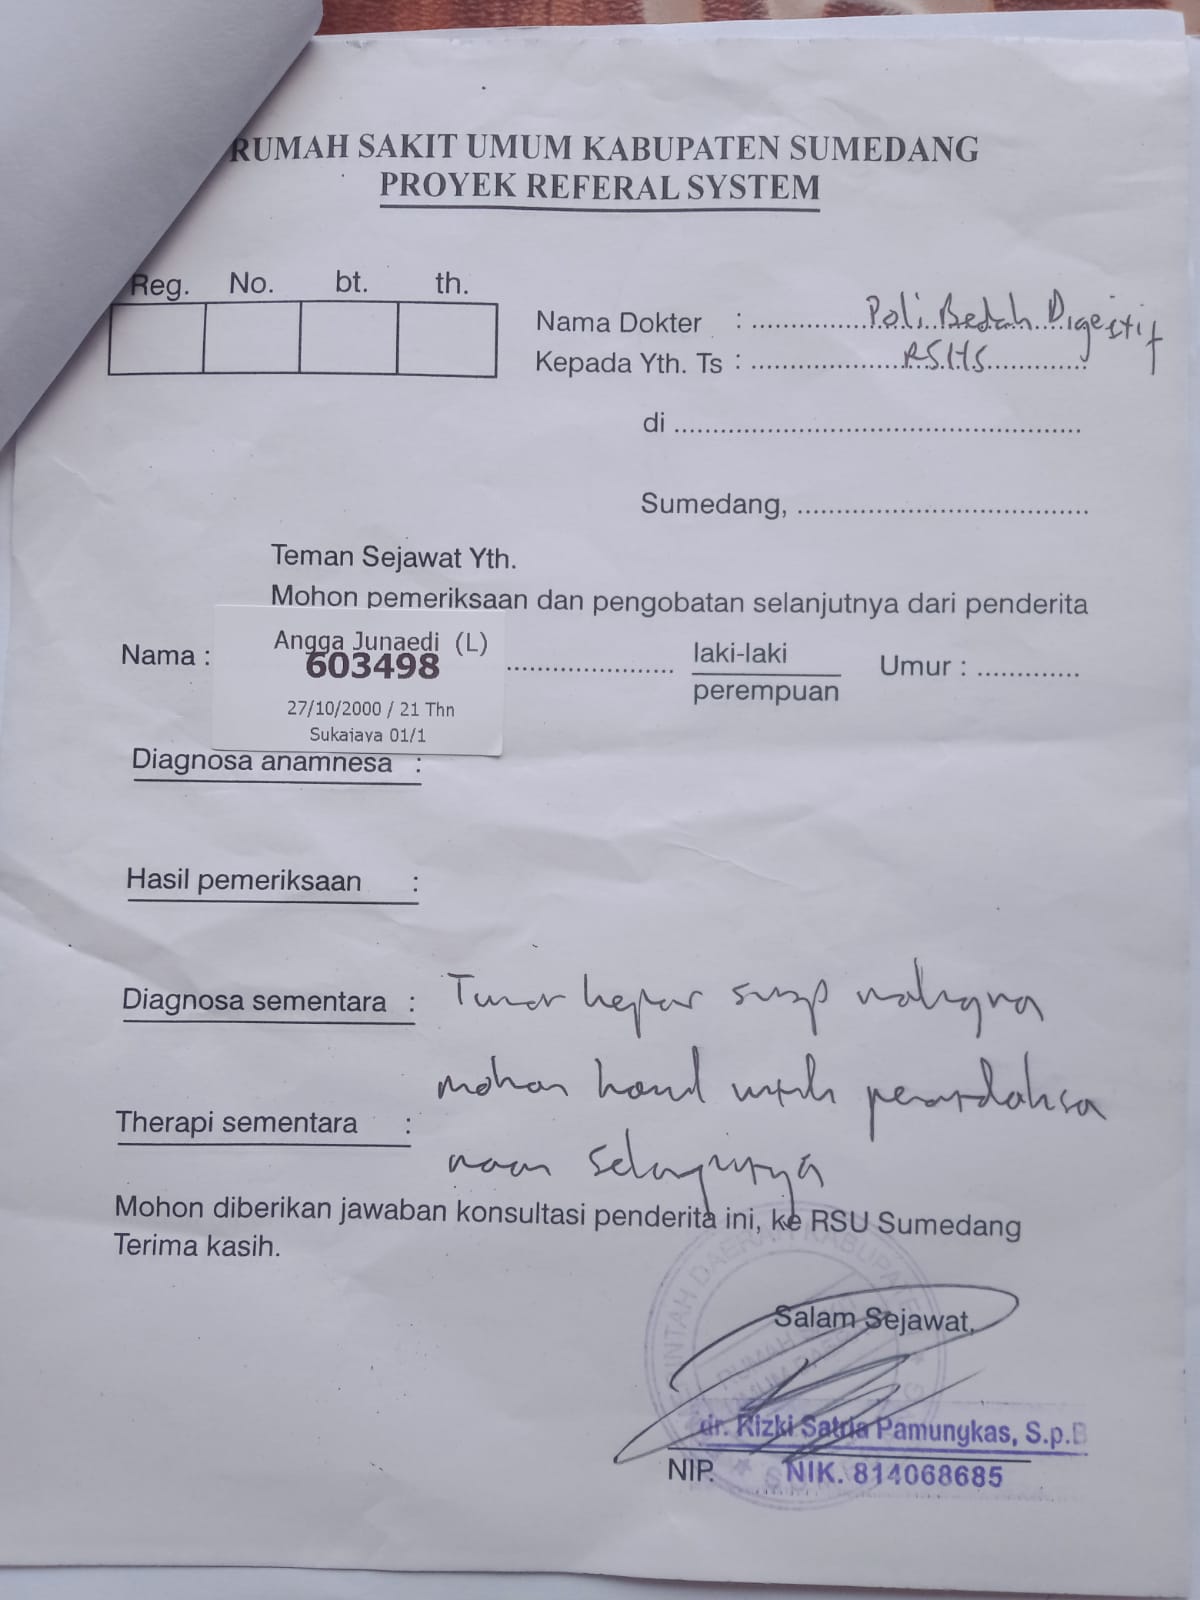 RUMAH SAKIT UMUM KABUPATEN SUMEDANG
PROYEK REFERAL SYSTEM
Reg. No. bt. th.
Nama Dokter : Poli Bedah Digestif
Kepada Yth. Ts : RSHS
di
Sumedang,
Teman Sejawat Yth.
Mohon pemeriksaan dan pengobatan selanjutnya dari penderita
Nama :
Angga Junaedi (L)
603498
27/10/2000 / 21 Thn
Sukajaya 01/1
laki-laki
perempuan
Umur :
Diagnosa anamnesa :
Hasil pemeriksaan :
Diagnosa sementara : Tumor hepar susp maligna
mohon untuk
Therapi sementara :
selanjutnya
Mohon diberikan jawaban konsultasi penderita ini, ke RSU Sumedang
Terima kasih.
Salam Sejawat,
dr. Rizki Satria Pamungkas, S.p.B
NIP. NIK. 814068685